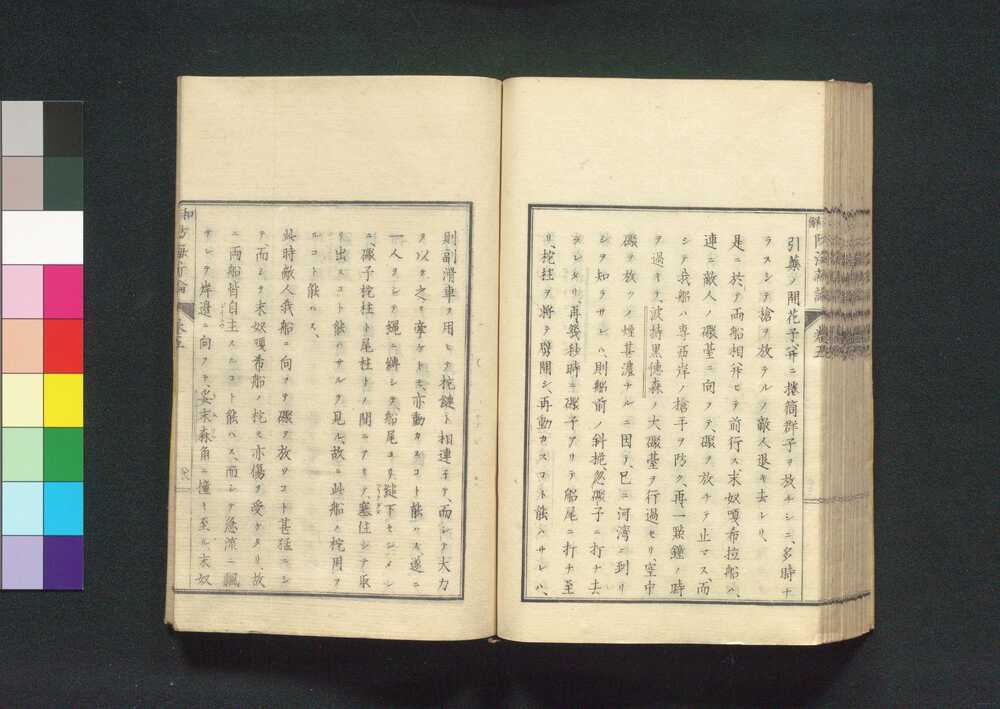 引藥ノ開花子弁ニ捲筒群子ヲ放チシニ、多時ナ
ラスシテ槍ヲ放テルノ敵人退キ去レリ、
是ニ於テ両船相並ヒテ前行ス、末奴嘎希拉船ハ、
連ニ敵人ノ礮臺ニ向ヲテ、礮ヲ放チテ止マス、而
シテ我船ハ専西岸ノ槍手ヲ防ク、再一點鐘ノ時
ヲ過キテ、波特黒徳森ノ大礮臺ヲ行過セリ、空中
礮ヲ放ツノ煙甚濃ナルニ因テ、已ニ河湾ニ到リ
シヲ知ラサレハ、則船前ノ斜桅忽礮子ニ打チ去
ラレタリ、再幾秒時ニ礮子アリテ船尾ニ打チ至
リ、柁柱ヲ將テ劈開シ、再動カスコト能ハサレハ、
則副滑車ヲ用ヒテ柁鏈ト相連子テ、而シテ大力
ヲ以テ之ヲ牽ケトモ、亦動カスコト能ハス、遂ニ
一人ヲシテ繩ニ縛シテ、船尾ヨリ縋下セシメシ
ニ、礮子柁柱ト尾柱トノ間ニアリテ、塞住シテ取
リ出スコト能ハサルヲ見ル、故ニ此船ノ柁用フ
ルコト能ハス、
此時敵人我船ニ向ヲテ礮ヲ放ツコト甚猛ニシ
テ、而シテ末奴嘎希船ノ柁モ亦傷ヲ受ケタリ、故
ニ両船皆自主スルコト能ハス、而シテ急流ニ飄
サレテ岸邉ニ向フテ、妥末森角ニ撞キ至ル、末奴